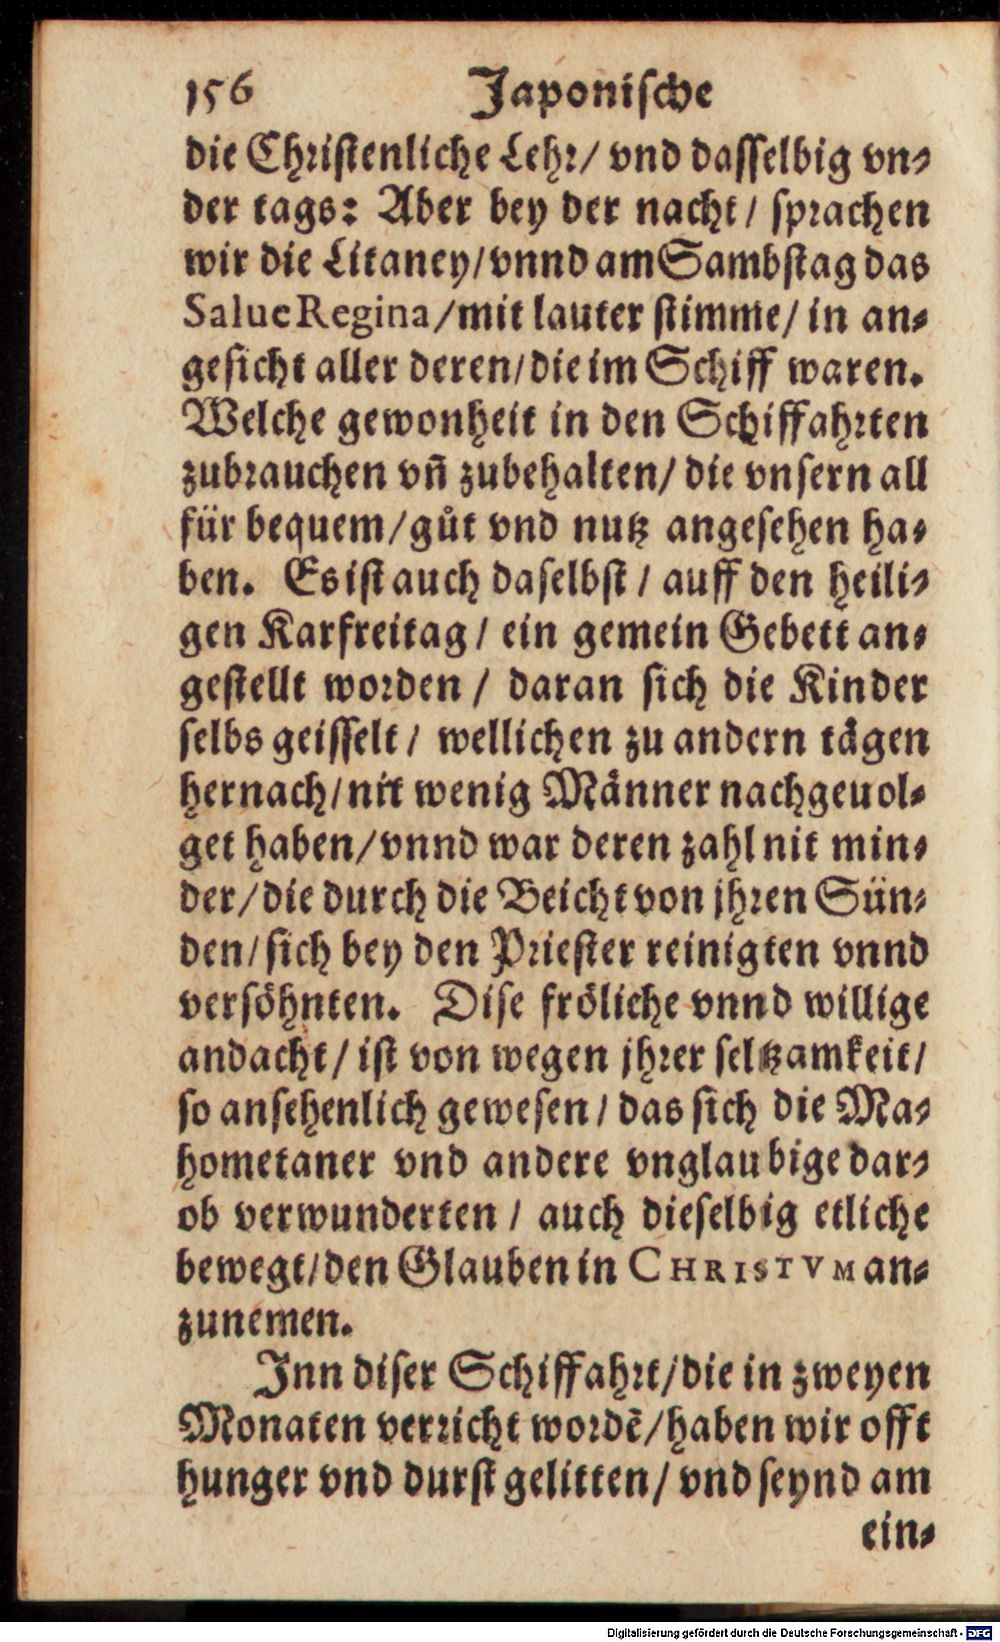 156 Japonische
die Christenliche Lehr/ vnd dasselbig vn-
der tags: Aber bey der nacht/ sprachen
wir die Litaney/vnnd am Sambstag das
Salue Regina/mit lauter stimme/ in an-
gesicht aller deren/die im Schiff waren.
Welche gewonheit in den Schiffahrten
zubrauchen vñ zubehalten/ die vnsern all
für bequem/gůt vnd nutz angesehen ha-
ben. Es ist auch daselbst/ auff den heili-
gen Karfreitag/ ein gemein Gebett an-
gestellt worden/ daran sich die Kinder
selbs geisselt/ wellichen zu andern tägen
hernach/nit wenig Männer nachgeuol-
get haben/vnnd war deren zahl nit min-
der/die durch die Beicht von jhren Sün-
den/sich bey den Priester reinigten vnnd
versöhnten. Dise fröliche vnnd willige
andacht/ ist von wegen jhrer seltzamkeit/
so ansehenlich gewesen/ das sich die Ma-
hometaner vnd andere vnglaubige dar-
ob verwunderten/ auch dieselbig etliche
bewegt/den Glauben in CHRISTVM an-
zunemen.
Inn diser Schiffahrt/die in zweyen
Monaten verricht wordē/haben wir offt
hunger vnd durst gelitten/ vnd seynd am
ein-
Digitalisierung gefördert durch die Deutsche Forschungsgemeinschaft - DFG